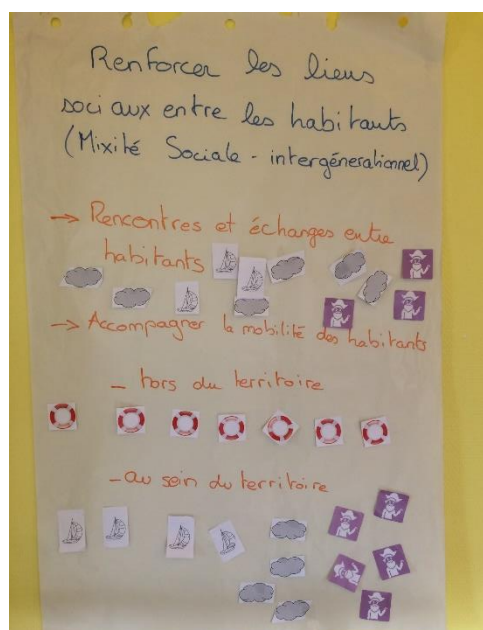 Renforcer les liens
sociaux entre les habitants
(Mixité Sociale - intergénerationnel)
→ Rencontres et échanges entre
habitants
→ Accompagner la mobilité des habitants
- hors du territoire
- au sein du territoire